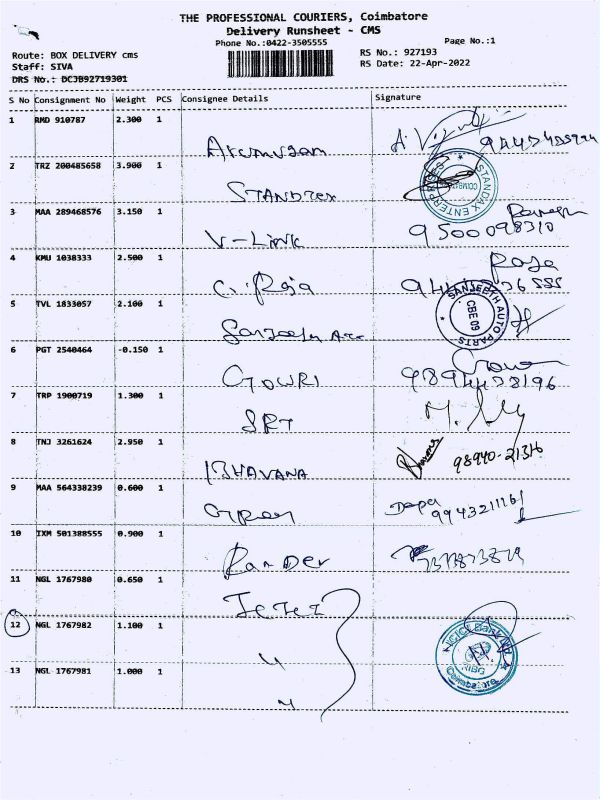 THE PROFESSIONAL COURIERS, Coimbatore
Delivery Runsheet - CMS
Phone No.:0422-3505555
Page No.:1
Route: BOX DELIVERY cms
RS No.: 927193
Staff: SIVA
RS Date: 22-Apr-2022
DRS No.: DCJB92719301
S No Consignment No Weight PCS Consignee Details Signature
1 RMD 910787 2.300 1
Arumugam
2 TRZ 200485658 3.900 1
STANDAX ENTERPRISES
3 MAA 289468576 3.150 1
V-Link 9500098310
4 KMU 1038333 2.500 1
C. Raja Raja
5 TVL 1833057 2.100 1
SANJEETH AUTO PARTS
CBE 09
6 PGT 2540464 -0.150 1
GOWRI
7 TRP 1900719 1.300 1
SRT
8 TNJ 3261624 2.950 1
BHAVANA 98940-21316
9 MAA 564338239 0.600 1
10 IXM 501388555 0.900 1
11 NGL 1767980 0.650 1
12 NGL 1767982 1.100 1
ICICI Bank
RIBG
Coimbatore
13 NGL 1767981 1.000 1